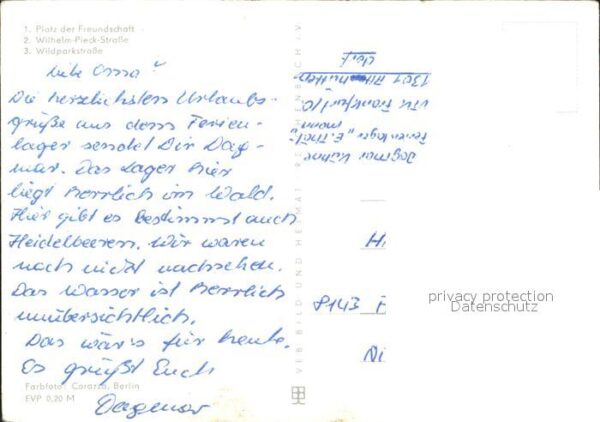 1. Platz der Freundschaft
2. Wilhelm-Pieck-Straße
3. Wildparkstraße
Liebe Oma!
Die herzlichsten Urlaubs-
grüße aus dem Ferien-
lager sendet Dir Dag-
mar. Das Lager hier
liegt herrlich im Wald.
Hier gibt es bestimmt auch
Heidelbeeren. Wir waren
noch nicht nachsehen.
Das Wasser ist herrlich
unübersichtlich.
Das wär's für heute.
Es grüßt Euch
Dagmar
Farbfoto: Corazza, Berlin
EVP 0,20 M
VEB BILD UND HEIMAT REICHENBACH I.V.
Dagmar
Ferienlager „E. Thäl-
mann"
via Frankfurt/O
1301
8143
privacy protection
Datenschutz